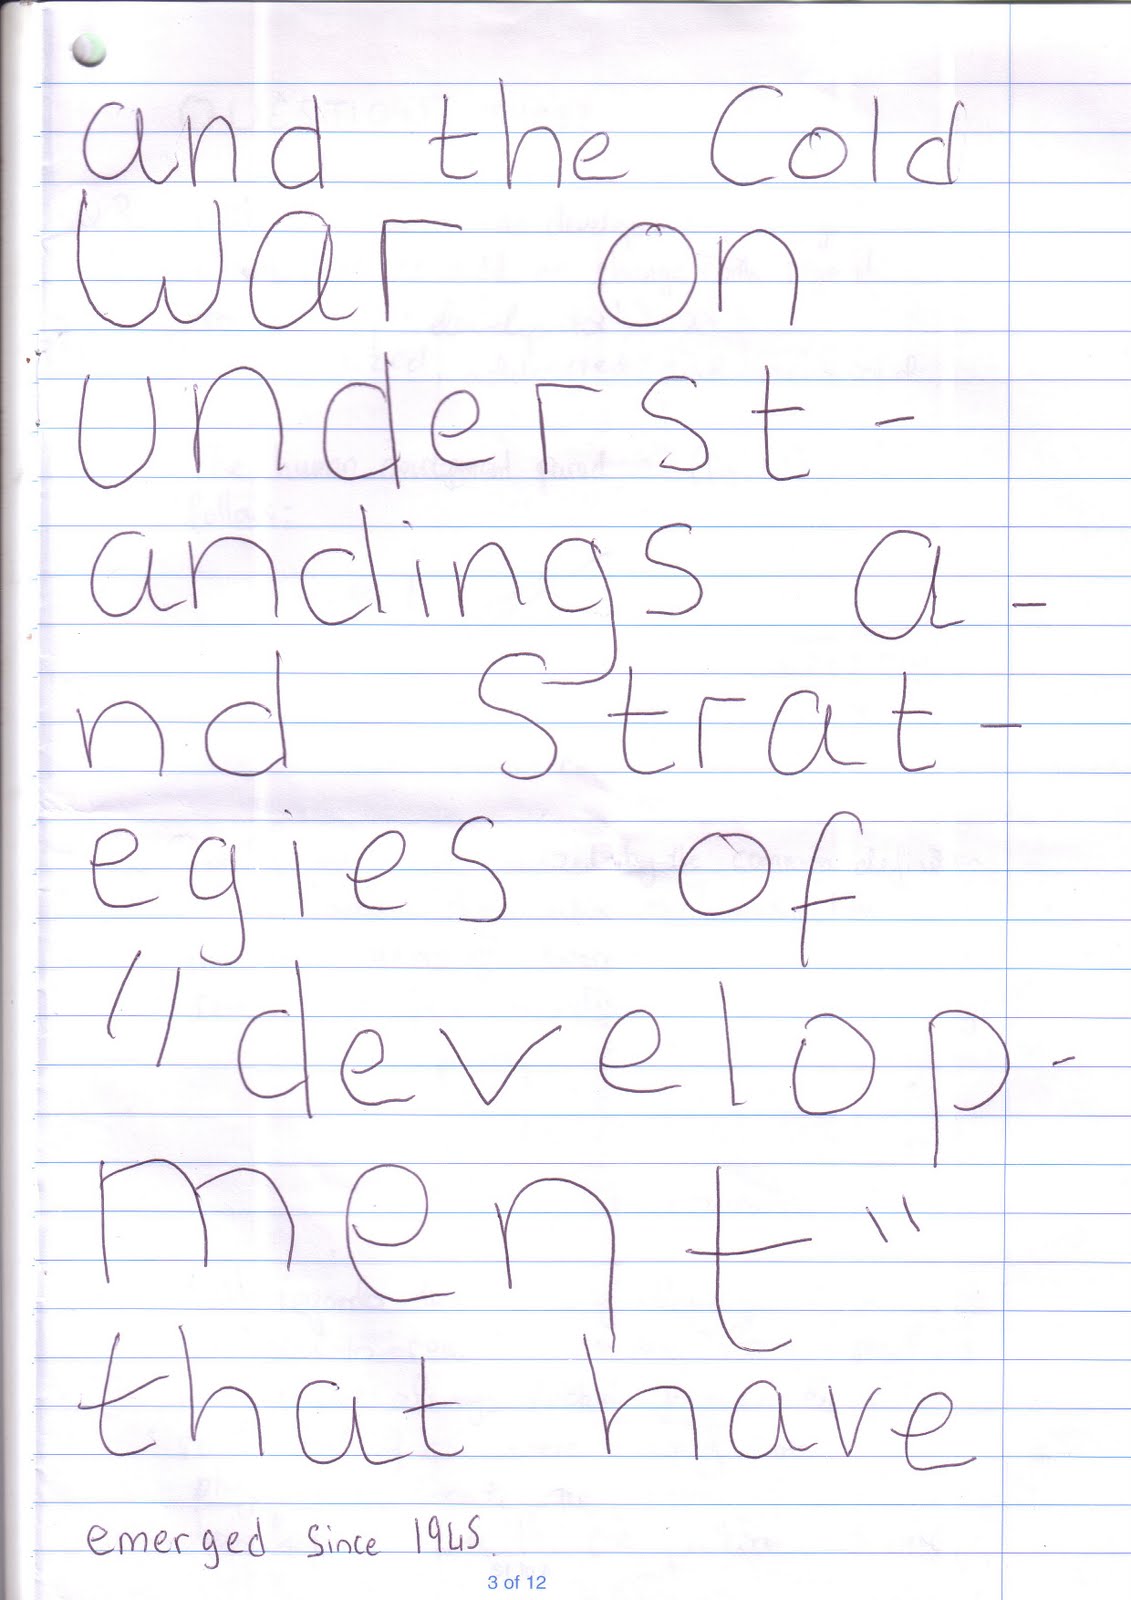 and the Cold
War on
underst-
andings a-
nd Strat-
egies of
"develop-
ment"
that have
emerged since 1945.
3 of 12